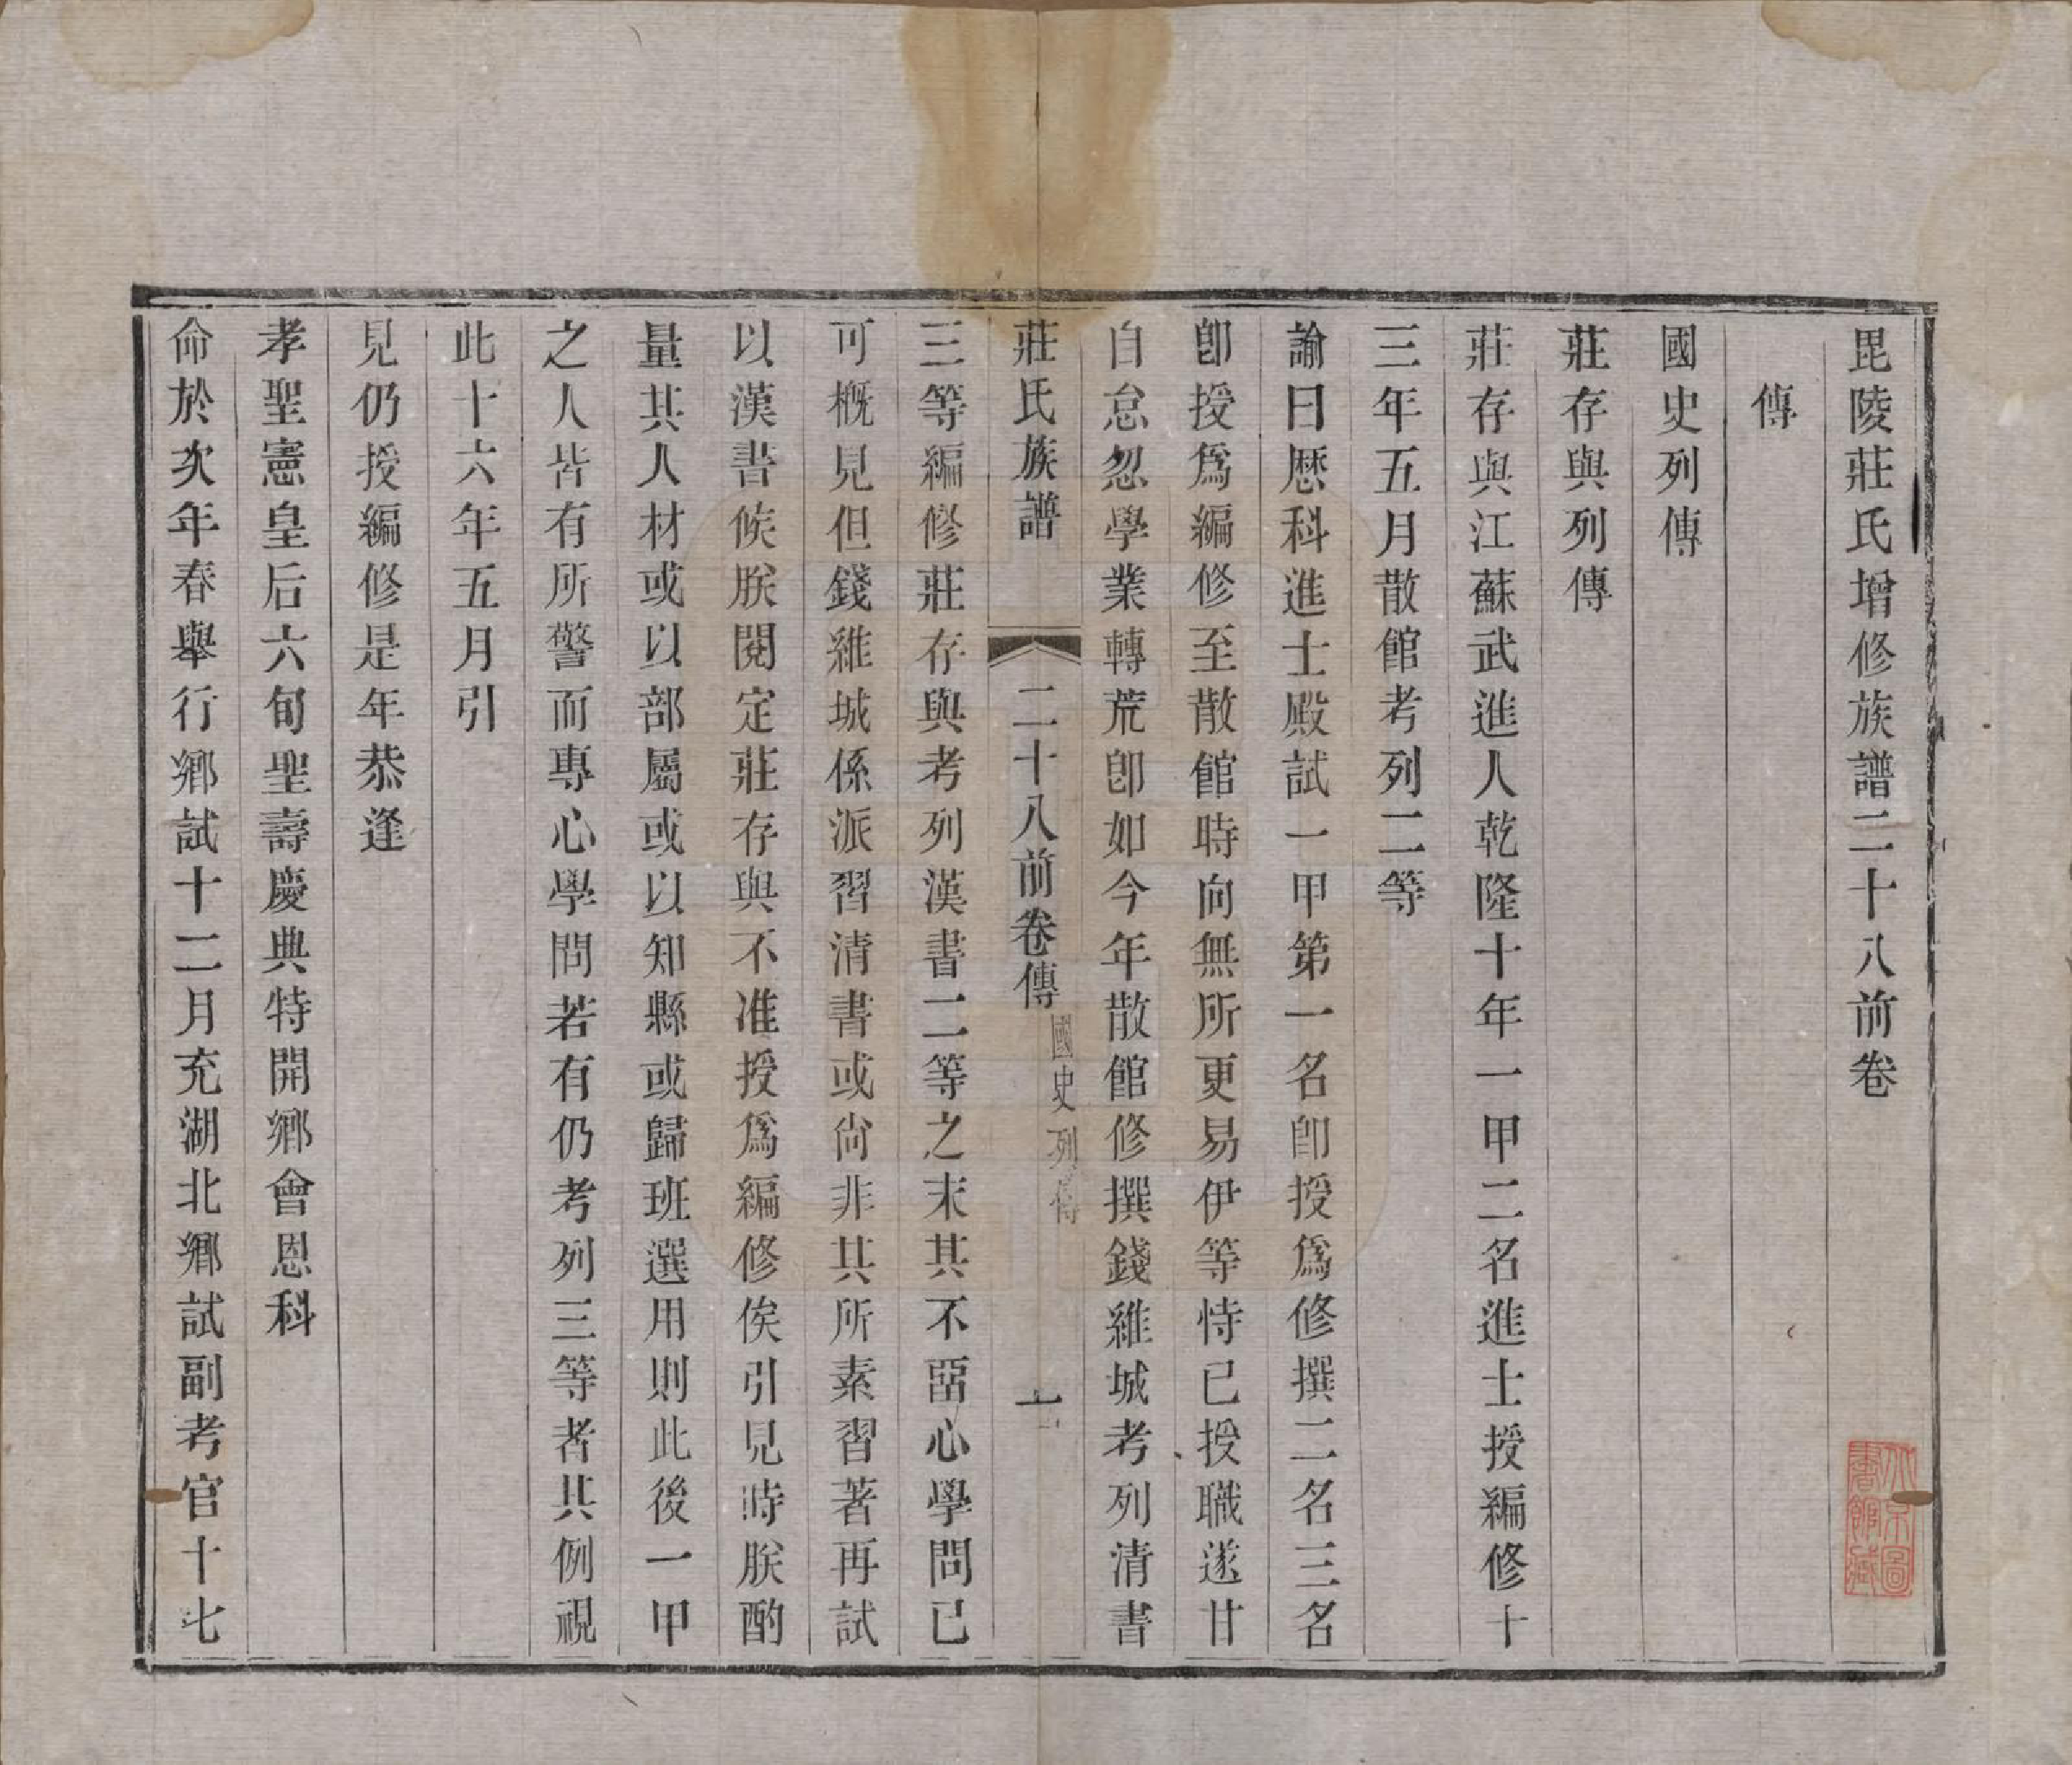 毘陵莊氏增修族譜二十八前卷
傳
國史列傳
莊存與列傳
莊存與江蘇武進人乾隆十年一甲二名進士授編修十
三年五月散館考列二等
諭曰歷科進士殿試一甲第一名卽授爲修撰二名三名
卽授爲編修至散館時向無所更易伊等恃已授職遂甘
自怠忽學業轉荒卽如今年散館修撰錢維城考列清書
莊氏族譜 二十八前卷傳 國史列傳 一
三等編修莊存與考列漢書二等之末其不留心學問已
可概見但錢維城係派習清書或尙非其所素習著再試
以漢書候朕閱定莊存與不准授爲編修俟引見時朕酌
量其人材或以部屬或以知縣或歸班選用則此後一甲
之人皆有所警而專心學問若有仍考列三等者其例視
此十六年五月引
見仍授編修是年恭逢
孝聖憲皇后六旬聖壽慶典特開鄉會恩科
命於次年春舉行鄉試十二月充湖北鄉試副考官十七